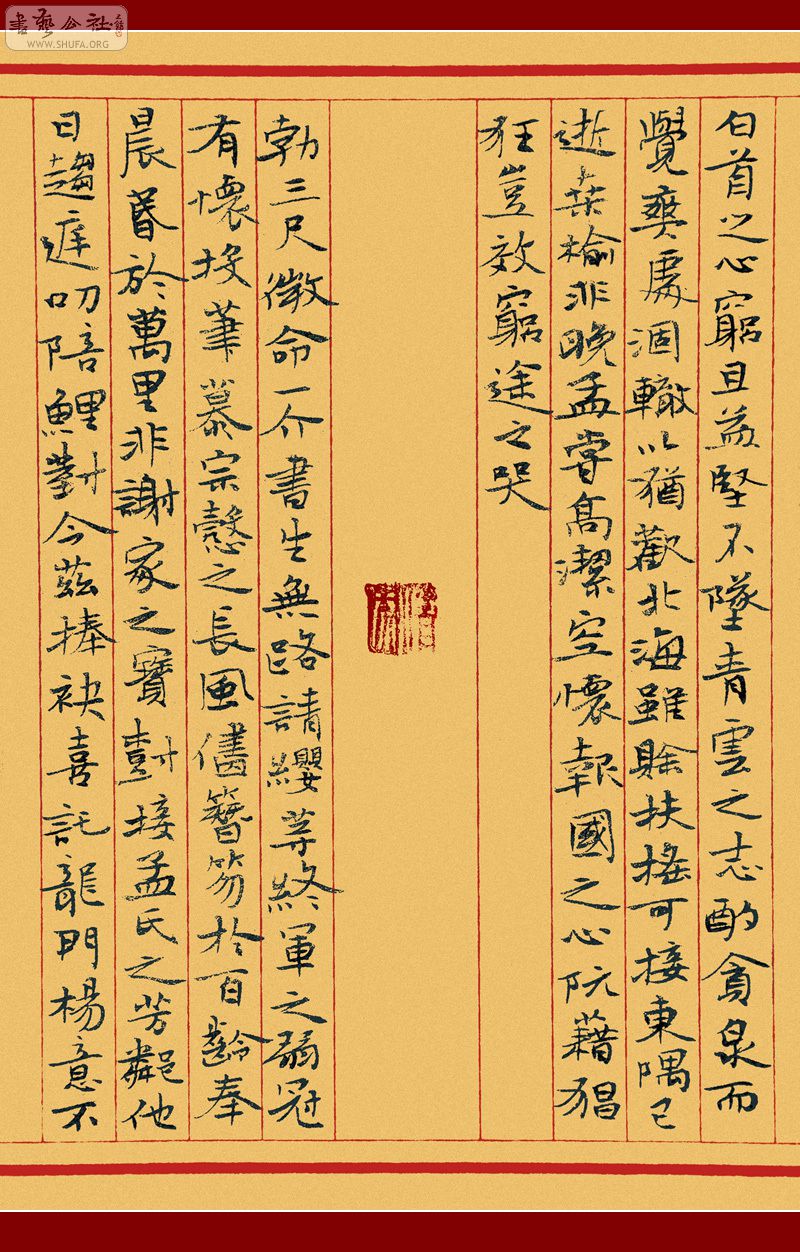 書藝公社
WWW.SHUFA.ORG
白首之心窮且益堅不墜青雲之志酌貪泉而
覺爽處涸轍以猶歡北海雖賒扶搖可接東隅已
逝桒榆非晚孟嘗髙潔空懷報國之心阮藉猖
狂豈效窮途之哭
勃三尺微命一介書生無路請纓等終軍之弱冠
有懷投筆慕宗愨之長風儘簪笏於百齡奉
晨昬於萬里非謝家之寶樹接孟氏之芳鄰他
日趨庭叨陪鯉對今茲捧袂喜託龍門楊意不